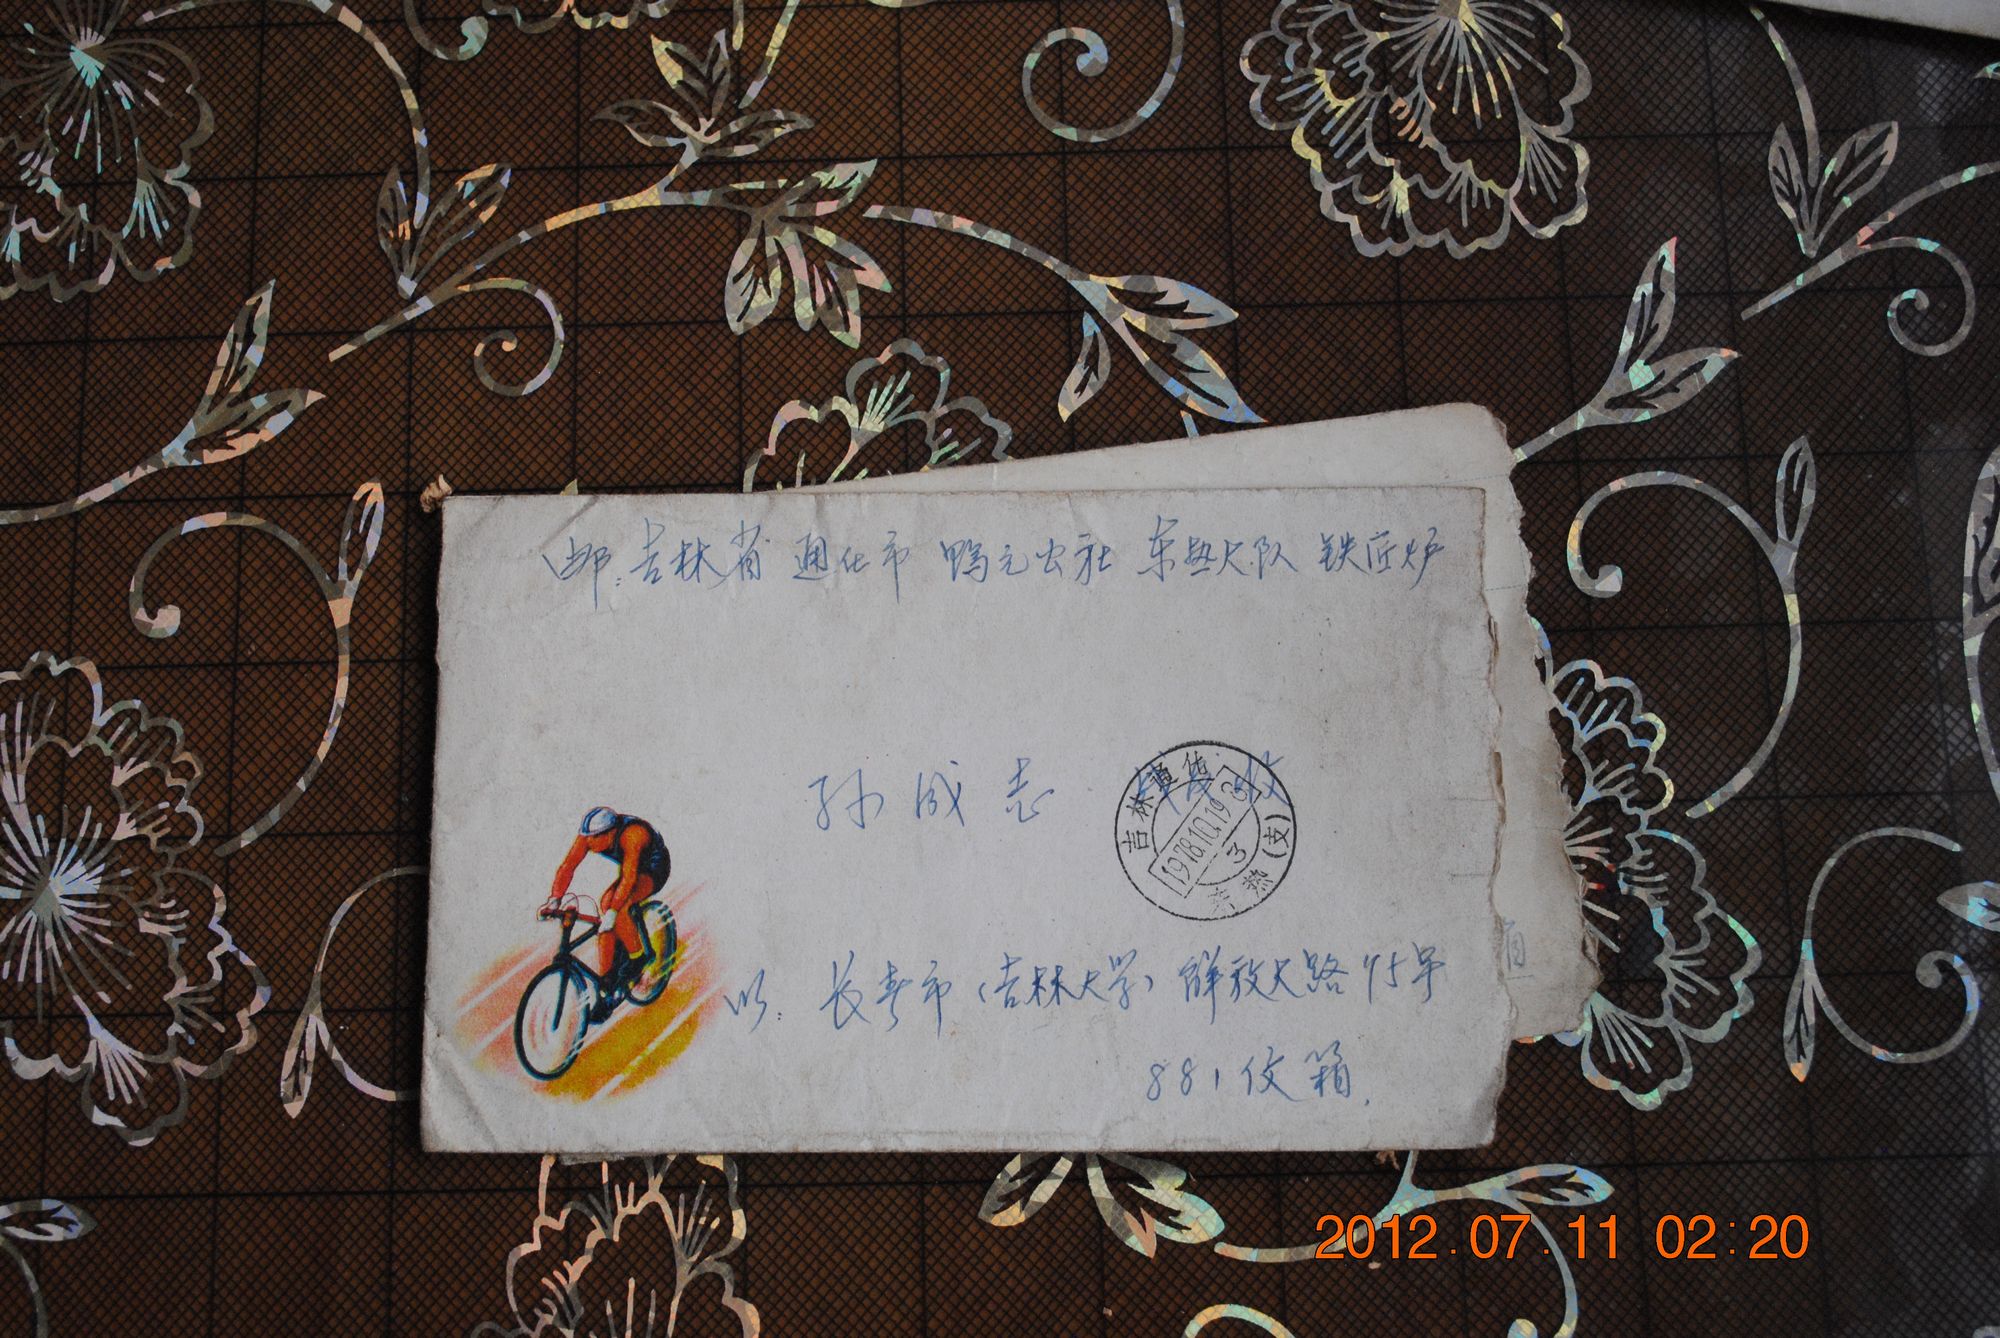 邮:吉林省 通化市 鸭元公社 东热大队 铁匠炉
孙成志 收
吉林通化
1978.10.19
3
东热(支)
以:长春市(吉林大学)解放大路95号
881信箱.
2012.07.11 02:20